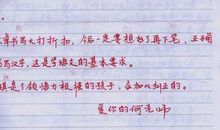 章书写大打折扣，今后一定要想好了再下笔，正确
书写汉字，这是学语文的基本要求。
填是个领悟力极强的孩子，会加以纠正的。
爱你的何老师